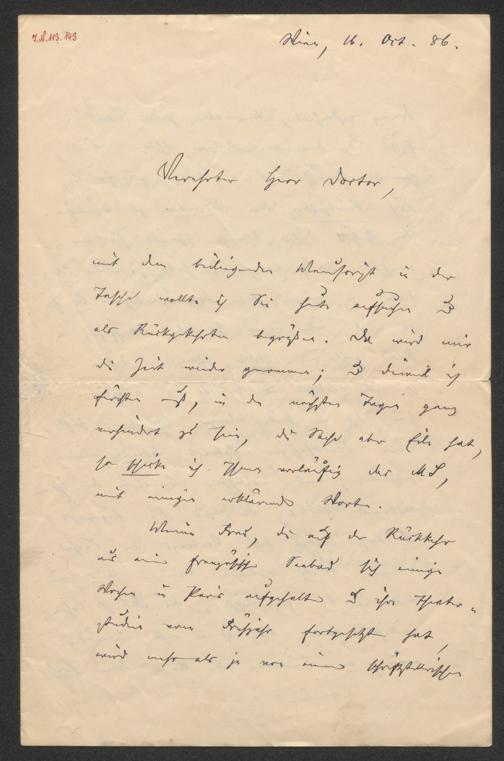 I.N. 113.143
Wien, 16. Oct. 86.
Verehrter Herr Doctor,
mit dem beiliegenden Manuscript in der
Tasche wollte ich Sie heute aufsuchen und
als Rückgekehrten begrüßen. Da wird mir
die Zeit wieder genommen; und dieweil ich
fürchten muß, in den nächsten Tagen ganz
verhindert zu sein, die Sache aber Eile hat,
so schicke ich Ihnen vorläufig das MS,
mit einigen erklärenden Worten.
Meine Frau, die auf der Rückkehr
aus einem französischen Seebad sich einige
Wochen in Paris aufgehalten und ihre Theater-
studien vom Frühjahr fortgesetzt hat,
wird mehr als je von einem schriftstellerischen